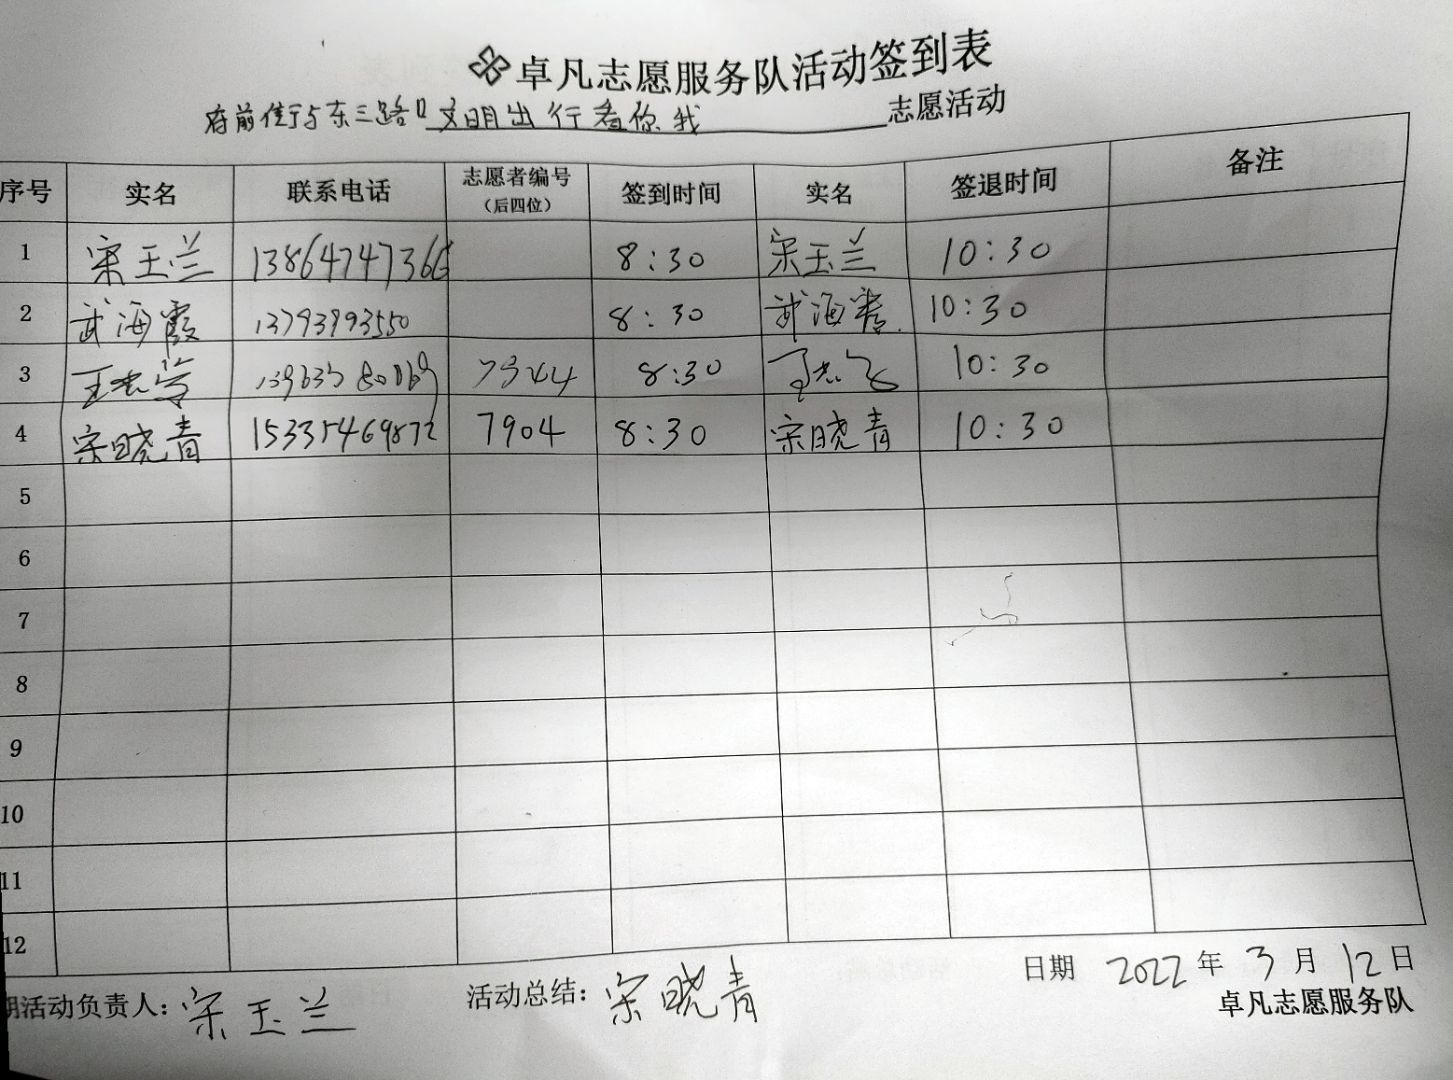 卓凡志愿服务队活动签到表
府前街与东三路口文明出行看你我 志愿活动
序号 实名 联系电话 志愿者编号（后四位） 签到时间 实名 签退时间 备注
1 宋玉兰 13864747366 8:30 宋玉兰 10:30
2 武海霞 13793993550 8:30 武海霞 10:30
3 8:30 10:30
4 宋晓青 15335469872 7904 8:30 宋晓青 10:30
5
6
7
8
9
10
11
12
期活动负责人：宋玉兰 活动总结：宋晓青 日期 2022年3月12日
卓凡志愿服务队